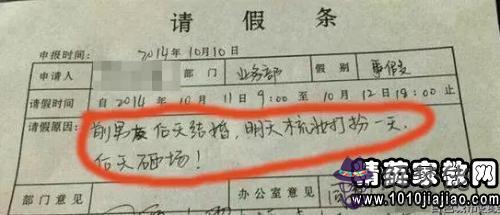 请假条
申报时间: 2014年10月10日
申请人 部门 业务部 假别 事假
请假时间 自2014年10月11日9:00至10月12日18:00止
请假原因: 前男友后天结婚,明天梳妆打扮一天,
后天砸场!
部门意见 办公室意见
精菜家教网
www.1010jiajiao.com